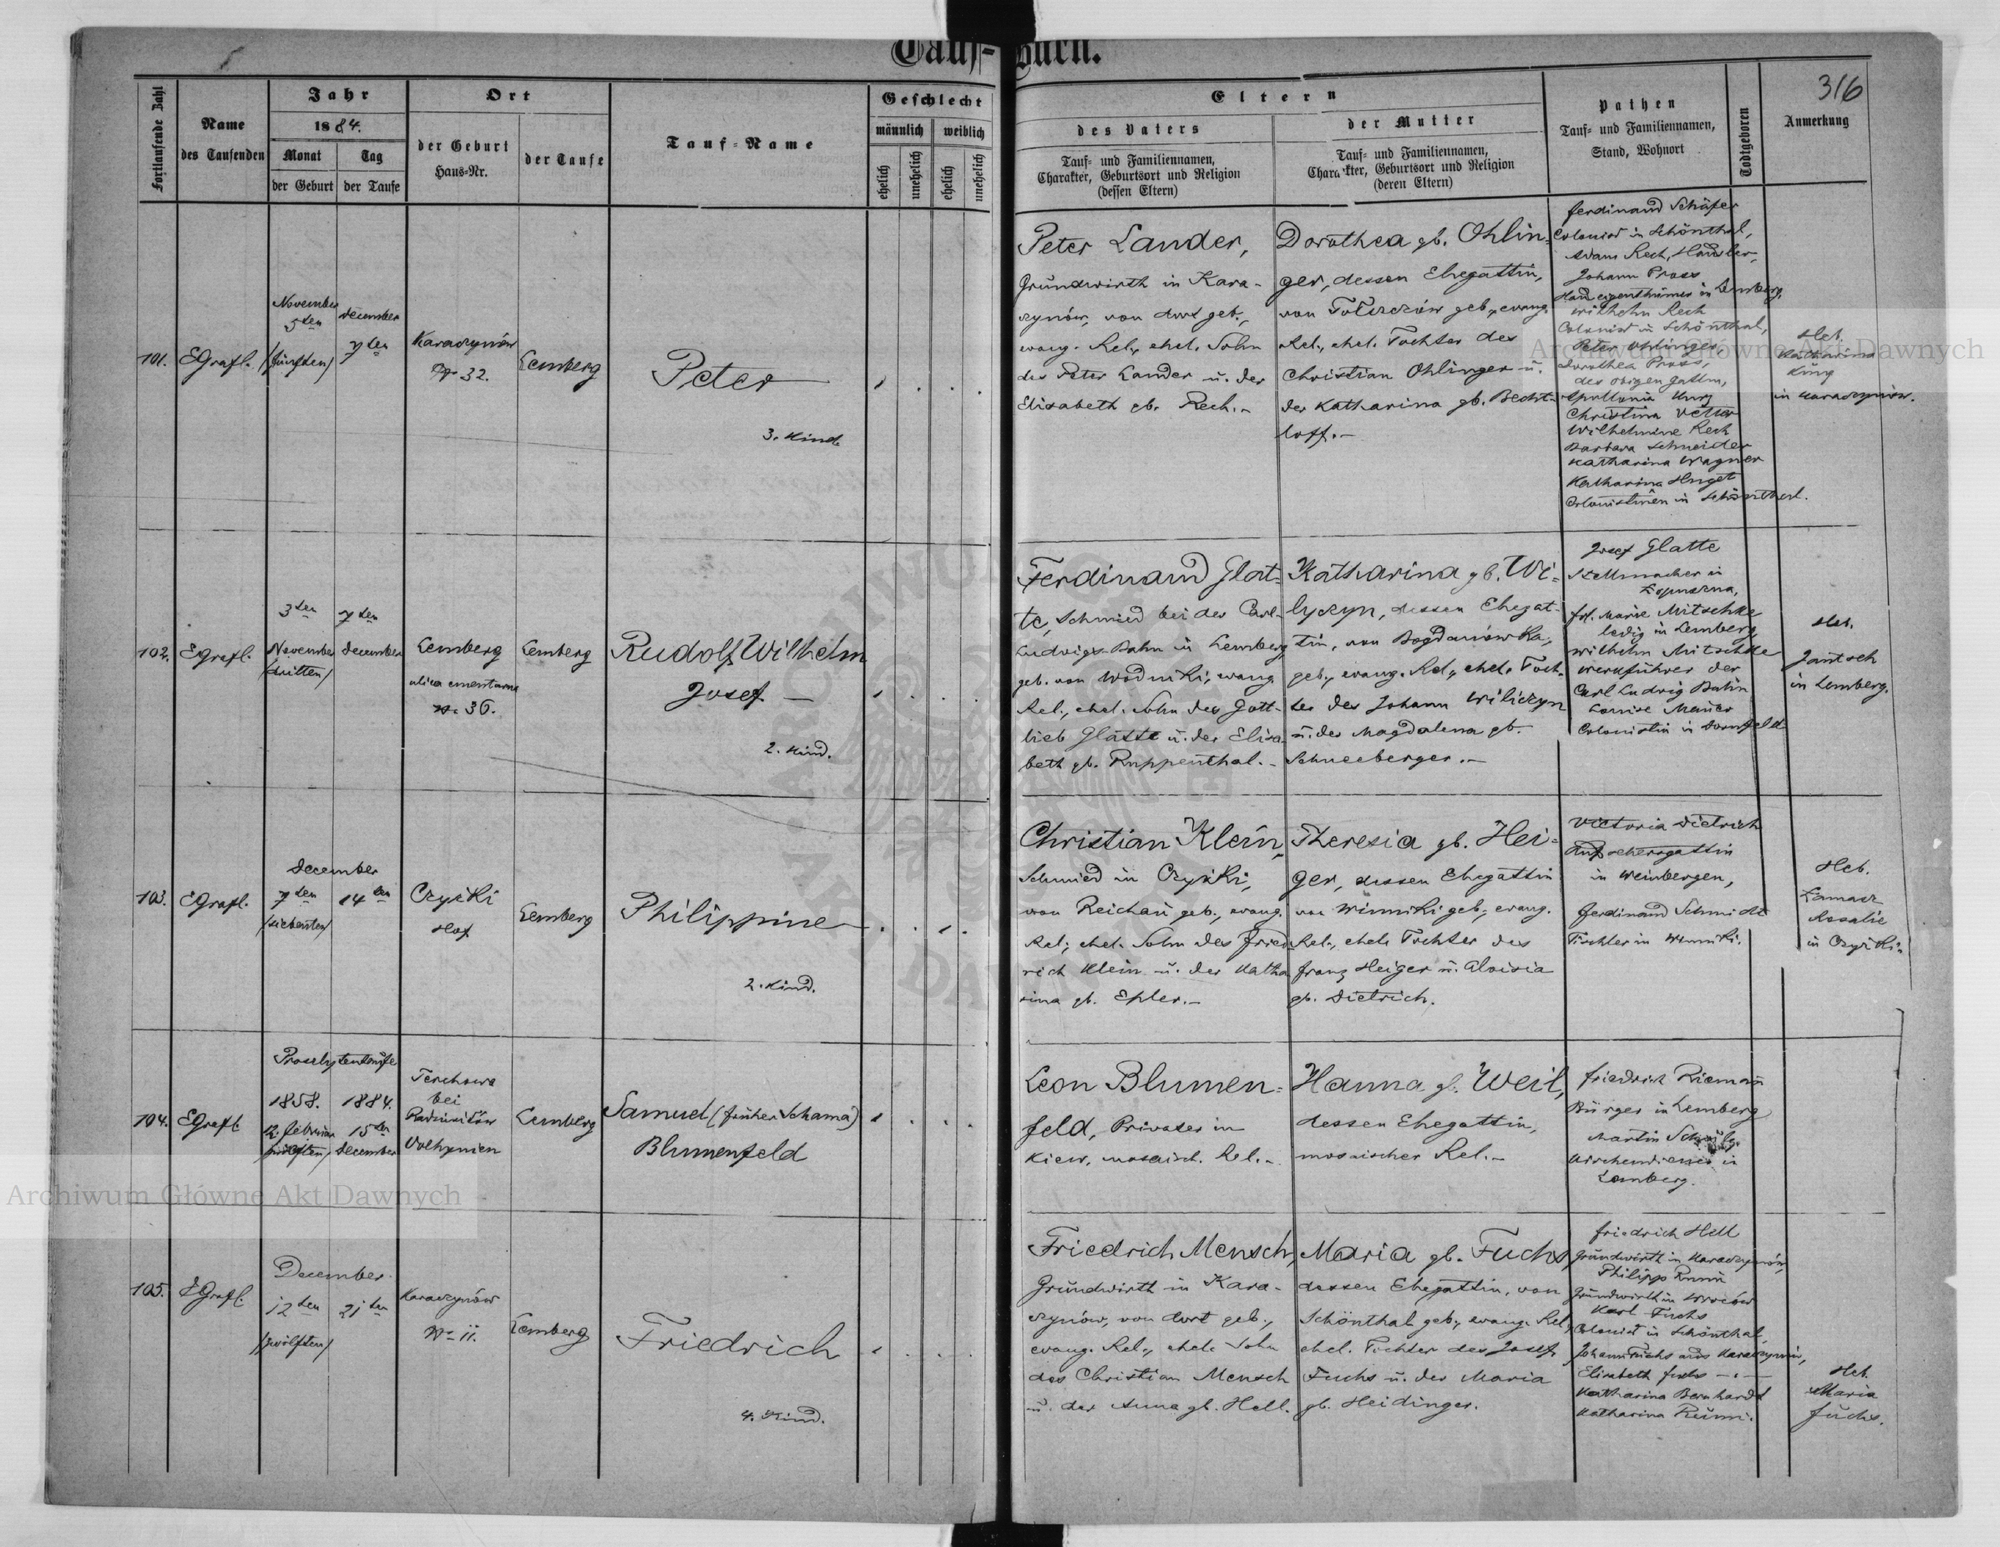 Tauf-Buch.
316
Fortlaufende Zahl
Name
des Taufenden
Jahr
1884.
Monat
Tag
der Geburt
der Taufe
Ort
der Geburt
Haus-Nr.
der Taufe
Tauf-Name
Geschlecht
männlich
weiblich
ehelich
unehelich
ehelich
unehelich
Eltern
des Vaters
Tauf- und Familiennamen,
Charakter, Geburtsort und Religion
(dessen Eltern)
der Mutter
Tauf- und Familiennamen,
Charakter, Geburtsort und Religion
(deren Eltern)
Pathen
Tauf- und Familiennamen,
Stand, Wohnort
Todtgeboren
Anmerkung
101.
EGrafl.
November
5ten
(fünften)
December
7ten
Karaczynów
Nr 32.
Lemberg
Peter
3. Kind.
Peter Lander,
Grundwirth in Kara-
czynów, von dort geb.,
evang. Rel., ehel. Sohn
des Peter Lander u. der
Elisabeth gb. Rech.-
Dorothea gb. Ohlin-
ger, dessen Ehegattin,
von geb., evang.
Rel., ehel. Tochter des
Christian Ohlinger u.
der Katharina gb. Becht-
loff.-
Ferdinand Schäfer
Colonist in Schönthal,
Adam Rech, Häusler,
Johann Pross
Hauseigenthümer in Lemberg,
Wilhelm Rech
Colonist in Schönthal,
Peter Ohlinger,
Dorothea Pross,
des obigen Gattin,
Apollonia Kurz
Christina Vetter
Wilhelmine Rech
Barbara Schneider
Katharina Wagner
Katharina Huget
Colonistinen in Schönthal.
Heb.
Katharina
König
in Karaczynów.
102.
EGrafl.
3ten
November
(dritten)
7ten
December
Lemberg
ulica cmentarna
Nr. 36.
Lemberg
Rudolf Wilhelm
Josef
2. Kind.
Ferdinand Glat-
te, Schmied bei der Carl-
Ludwigs-Bahn in Lemberg,
geb. von Wodniki, evang.
Rel., ehel. Sohn des Gott-
lieb Glatte u. der Elisa-
beth gb. Ruppenthal.-
Katharina gb. Wi-
lyczyn, dessen Ehegat-
tin, von Bogdanówka,
geb., evang. Rel., ehel. Toch-
ter des Johann Wiliczyn
u. der Magdalena gb.
Schneeberger.-
Josef Glatte
Stellmacher in
frl. Marie Mitschke
ledig in Lemberg
Wilhelm Mitschke
Werkführer der
Carl Ludwig Bahn
Louise Mauer
Colonistin in Dornfeld
Heb.
Jantsch
in Lemberg.
103.
EGrafl.
December
7ten
14ten
(siebenten)
Czyżki
Hof
Lemberg
Philippine
2. Kind.
Christian Klein,
Schmied in Czyżki,
von Reichau geb., evang.
Rel., ehel. Sohn des Fried-
rich Klein u. der Katha-
rina gb. Epler.-
Theresia gb. Hei-
ger, dessen Ehegattin
von Winniki geb., evang.
Rel., ehel. Tochter des
Franz Heiger u. Aloisia
gb. Dietrich.
Victoria Dietrich
Aufsehersgattin
in Weinbergen,
Ferdinand Schmidt
Tischler in Winniki.
Heb.
Rosalie
in Czyżki.
104.
EGrafl.
Proselytentaufe
1858.
12. Februar
(zwölften)
1884.
15ten
December
bei
Volhynien
Lemberg
Samuel (früher Schama)
Blumenfeld
Leon Blumen-
feld, Privater in
Kiew, mosaisch. Rel.-
Hanna gb. Weil,
dessen Ehegattin,
mosaischer Rel.-
Friedrich Riemann
Bürger in Lemberg
Martin
Kirchendiener in
Lemberg.
105.
EGrafl.
December
12ten
21ten
(zwölften)
Karaczynów
Nr 11.
Lemberg
Friedrich
4. Kind.
Friedrich Mensch,
Grundwirth in Kara-
czynów, von dort geb.,
evang. Rel., ehel. Sohn
des Christian Mensch
u. der Anna gb. Hell.
Maria gb. Fuchs,
dessen Ehegattin, von
Schönthal geb., evang. Rel.,
ehel. Tochter des Josef
Fuchs u. der Maria
gb. Heidinger.
Friedrich Hell
Grundwirth in Karaczynów,
Philipp
Grundwirth in
Karl Fuchs
Colonist in Schönthal,
Johann Fuchs aus Karaczynów,
Elisabeth Fuchs
Katharina Bernhardt
Katharina
Heb.
Maria
Fuchs.
Archiwum Główne Akt Dawnych
Archiwum Główne Akt Dawnych